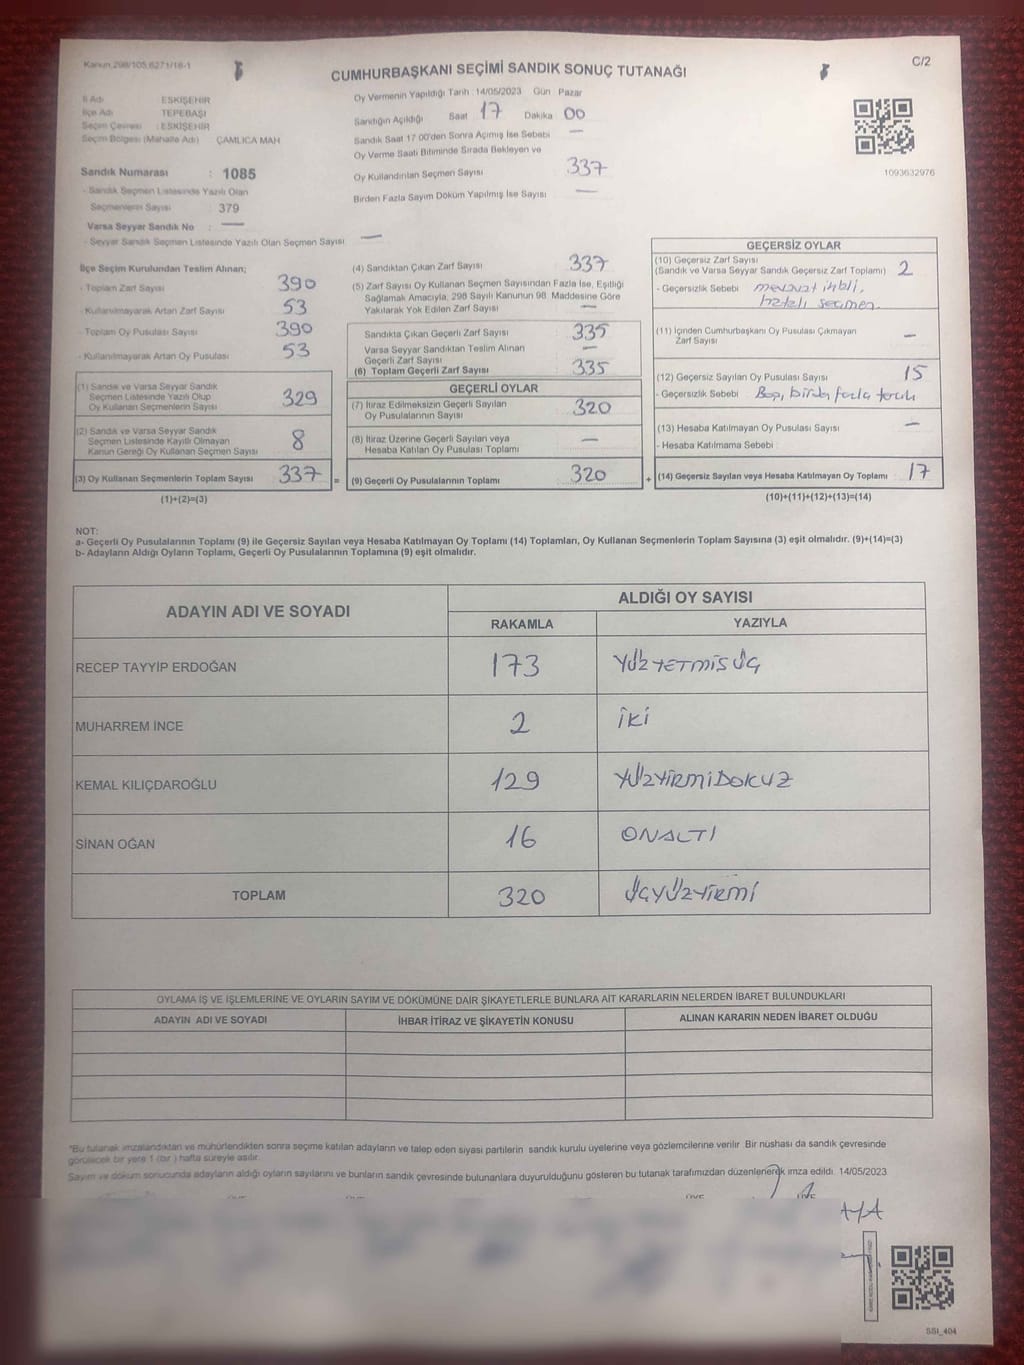 Kanun 298/105,6271/16-1
C/2
CUMHURBAŞKANI SEÇİMİ SANDIK SONUÇ TUTANAĞI
İl Adı ESKİŞEHİR
İlçe Adı TEPEBAŞI
Seçim Çevresi : ESKİŞEHİR
Seçim Bölgesi (Mahalle Adı) ÇAMLICA MAH
Sandık Numarası : 1085
- Sandık Seçmen Listesinde Yazılı Olan
Seçmenlerin Sayısı 379
Varsa Seyyar Sandık No : —
- Seyyar Sandık Seçmen Listesinde Yazılı Olan Seçmen Sayısı —
Oy Vermenin Yapıldığı Tarih 14/05/2023 Gün Pazar
Sandığın Açıldığı Saat 17 Dakika 00
Sandık Saat 17 00'den Sonra Açımış İse Sebebi —
Oy Verme Saati Bitiminde Sırada Bekleyen ve
Oy Kullandırılan Seçmen Sayısı 337
Birden Fazla Sayım Döküm Yapılmış İse Sayısı —
1093632976
İlçe Seçim Kurulundan Teslim Alınan;
- Toplam Zarf Sayısı 390
- Kullanılmayarak Artan Zarf Sayısı 53
- Toplam Oy Pusulası Sayısı 390
- Kullanılmayarak Artan Oy Pusulası 53
(1) Sandık ve Varsa Seyyar Sandık
Seçmen Listesinde Yazılı Olup
Oy Kullanan Seçmenlerin Sayısı 329
(2) Sandık ve Varsa Seyyar Sandık
Seçmen Listesinde Kayıtlı Olmayan
Kanun Gereği Oy Kullanan Seçmen Sayısı 8
(3) Oy Kullanan Seçmenlerin Toplam Sayısı 337 =
(1)+(2)=(3)
(4) Sandıktan Çıkan Zarf Sayısı 337
(5) Zarf Sayısı Oy Kullanan Seçmen Sayısından Fazla İse, Eşitliği
Sağlamak Amacıyla, 298 Sayılı Kanunun 98. Maddesine Göre
Yakılarak Yok Edilen Zarf Sayısı —
Sandıkta Çıkan Geçerli Zarf Sayısı 335
Varsa Seyyar Sandıktan Teslim Alınan
Geçerli Zarf Sayısı —
(6) Toplam Geçerli Zarf Sayısı 335
GEÇERLİ OYLAR
(7) İtiraz Edilmeksizin Geçerli Sayılan
Oy Pusulalarının Sayısı 320
(8) İtiraz Üzerine Geçerli Sayılan veya
Hesaba Katılan Oy Pusulası Toplamı —
(9) Geçerli Oy Pusulalarının Toplamı 320 +
GEÇERSİZ OYLAR
(10) Geçersiz Zarf Sayısı
(Sandık ve Varsa Seyyar Sandık Geçersiz Zarf Toplamı) 2
- Geçersizlik Sebebi
seçmen.
(11) İçinden Cumhurbaşkanı Oy Pusulası Çıkmayan
Zarf Sayısı —
(12) Geçersiz Sayılan Oy Pusulası Sayısı 15
- Geçersizlik Sebebi Boş, birden fazla tercih
(13) Hesaba Katılmayan Oy Pusulası Sayısı —
- Hesaba Katılmama Sebebi
(14) Geçersiz Sayılan veya Hesaba Katılmayan Oy Toplamı 17
(10)+(11)+(12)+(13)=(14)
NOT:
a- Geçerli Oy Pusulalarının Toplamı (9) ile Geçersiz Sayılan veya Hesaba Katılmayan Oy Toplamı (14) Toplamları, Oy Kullanan Seçmenlerin Toplam Sayısına (3) eşit olmalıdır. (9)+(14)=(3)
b- Adayların Aldığı Oyların Toplamı, Geçerli Oy Pusulalarının Toplamına (9) eşit olmalıdır.
ADAYIN ADI VE SOYADI
ALDIĞI OY SAYISI
RAKAMLA YAZIYLA
RECEP TAYYİP ERDOĞAN 173 YÜZYETMİSÜÇ
MUHARREM İNCE 2 İKİ
KEMAL KILIÇDAROĞLU 129 YÜZYİRMİDOKUZ
SİNAN OĞAN 16 ONALTI
TOPLAM 320 ÜÇYÜZYİRMİ
OYLAMA İŞ VE İŞLEMLERINE VE OYLARIN SAYIM VE DÖKÜMÜNE DAİR ŞİKAYETLERLE BUNLARA AİT KARARLARIN NELERDEN İBARET BULUNDUKLARI
ADAYIN ADI VE SOYADI İHBAR İTİRAZ VE ŞİKAYETİN KONUSU ALINAN KARARIN NEDEN İBARET OLDUĞU
*Bu tutanak imzalandıktan ve mühürlendikten sonra seçime katılan adayların ve talep eden siyasi partilerin sandık kurulu üyelerine veya gözlemcilerine verilir Bir nüshası da sandık çevresinde
görülecek bir yere 1 (bir ) hafta süreyle asılır.
Sayım ve döküm sonucunda adayların aldığı oyların sayılarını ve bunların sandık çevresinde bulunanlara duyurulduğunu gösteren bu tutanak tarafımızdan düzenlenerek imza edildi. 14/05/2023
SSI_404